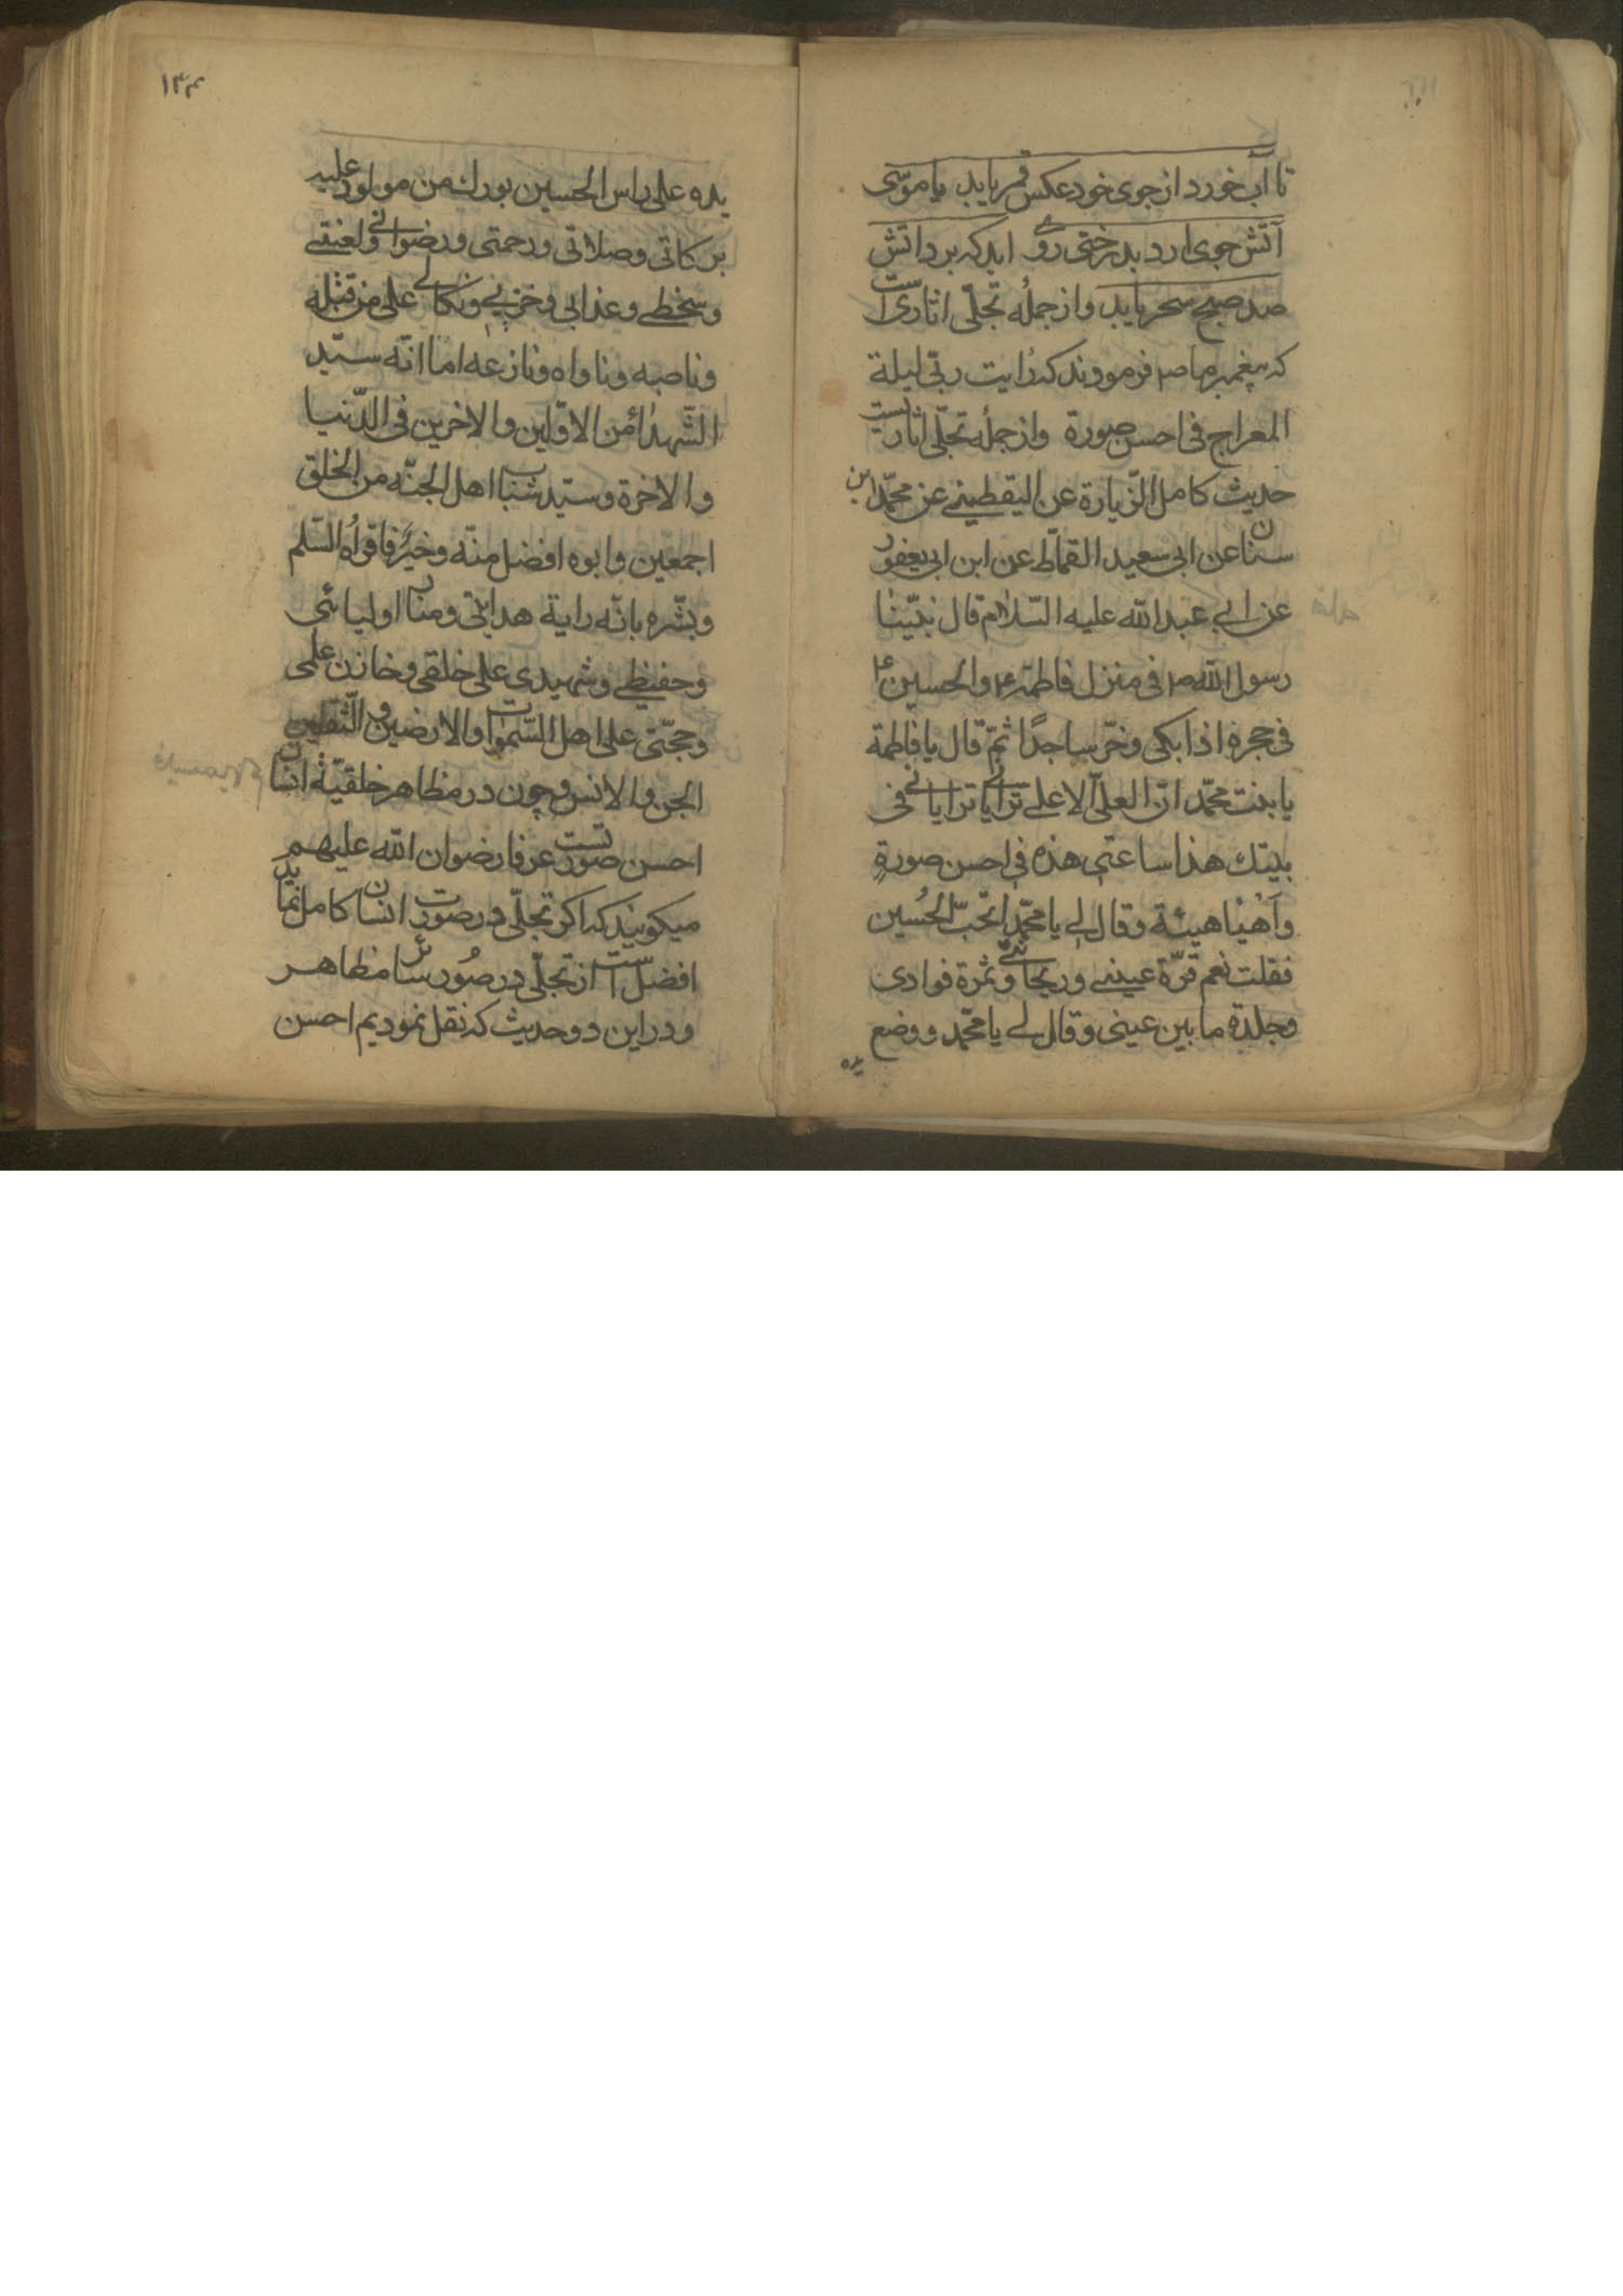 تا آب خورد از جوی خود عکس قمر یابد یا موسی
آتش جوی ارد بدرختی روی اید که برد اتش
صد صبح سحر یابد و از جملهٔ تجلّی اثاری است
که پیغمبر ما ص فرمووند که رایت ربّی لیلة
المعراج فی احسن صورة و از جملهٔ تجلّی اثاریست
حدیث کامل الزّیارة عن الیقطینے عن محمّد ابن
سنان عن ابی سعید القمّاط عن ابن ابی یعفور
عن ابی عبد الله علیه السّلام قال بینا
رسول الله ص فی منزل فاطمة ع والحسین ع
فی حجره اذا بکی وخرّ ساجدًا ثمّ قال یا فاطمة
یا بنت محمّد انّ العلیّ الاعلے ترایا ترایا لی فی
بیتك هذا ساعتی هذه فی احسن صورةٍ
وأهیٰا هیئة وقال لی یا محمّد اتحبّ الحُسین
فقلت نعم قرّة عینے وریحانتے وثمرة فوادی
وجلدة ما بین عینی وقال لے یا محمّد ووضع
یده
۱۳۴
یده علی راس الحسین بورك من مولود علیه
برکاتی وصلاتی ورحمتی ورضوانی ولعنتے
وسخطے وعذابی وخزیی ونکالے علی من قتله
وناصبه وناواه ونازعه اما انّه سیّد
الشّهدأ من الاوّلین والاخرین فی الدّنیا
والاخرة وسیّد شباب اهل الجنّه من الخلق
اجمعین وابوه افضل منه وخیرٌ فاقرأه السّلم
وبشّره بانّه رایة هدایتی ومنار اولیائی
وحفیظے وشهیدی علی خلقی وخازن علمی
وحجّتی علی اهل السّموات والارضین و الثّقلین
الجن والانس و چون در مظاهر خلقیّهٔ انسان
احسن صورتست عرفا رضوان الله علیهم
میکویند که اکر تجلّی در صورت انسان کامل نماید
افضل است از تجلّی در صُور سائر مظاهر
و در این دو حدیث که نقل نمودیم احسن